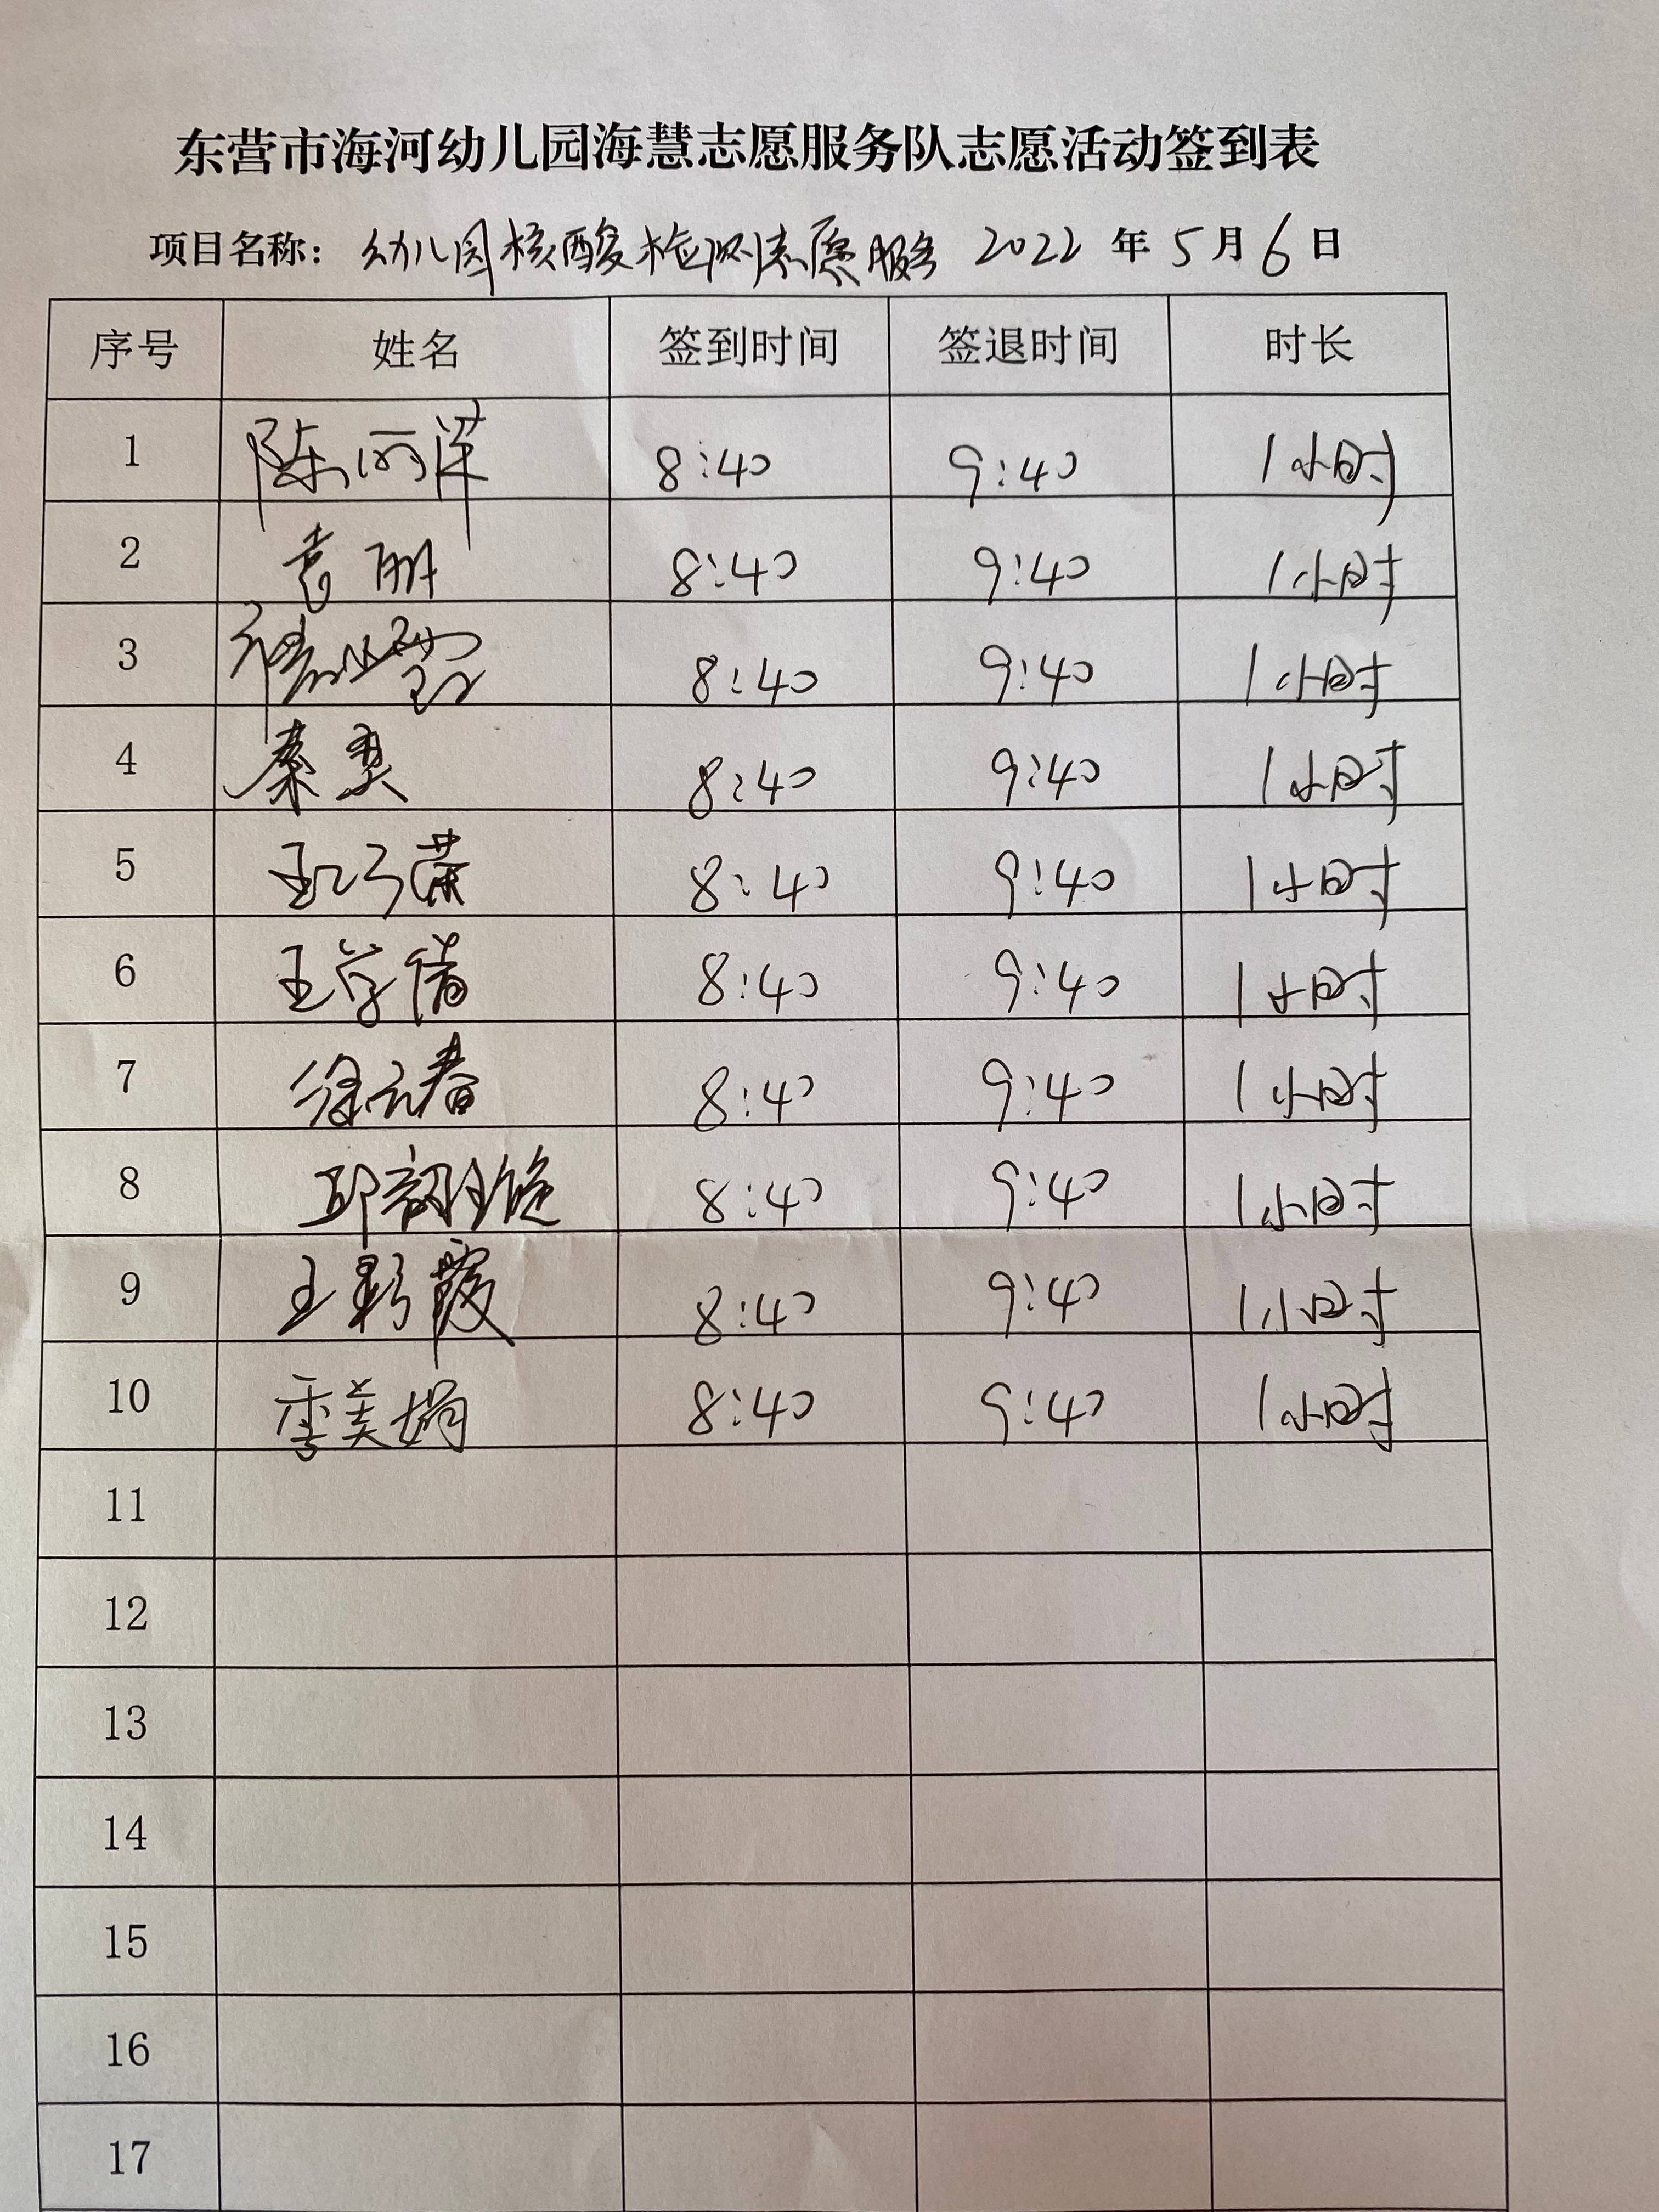 东营市海河幼儿园海慧志愿服务队志愿活动签到表
项目名称: 幼儿园核酸检测志愿服务 2022 年 5 月 6 日
序号 姓名 签到时间 签退时间 时长
1 陈丽萍 8:40 9:40 1小时
2 袁丽 8:40 9:40 1小时
3 8:40 9:40 1小时
4 秦 8:40 9:40 1小时
5 王巧荣 8:40 9:40 1小时
6 王学倩 8:40 9:40 1小时
7 徐元春 8:40 9:40 1小时
8 邱 8:40 9:40 1小时
9 王彩霞 8:40 9:40 1小时
10 季美娟 8:40 9:40 1小时
11
12
13
14
15
16
17